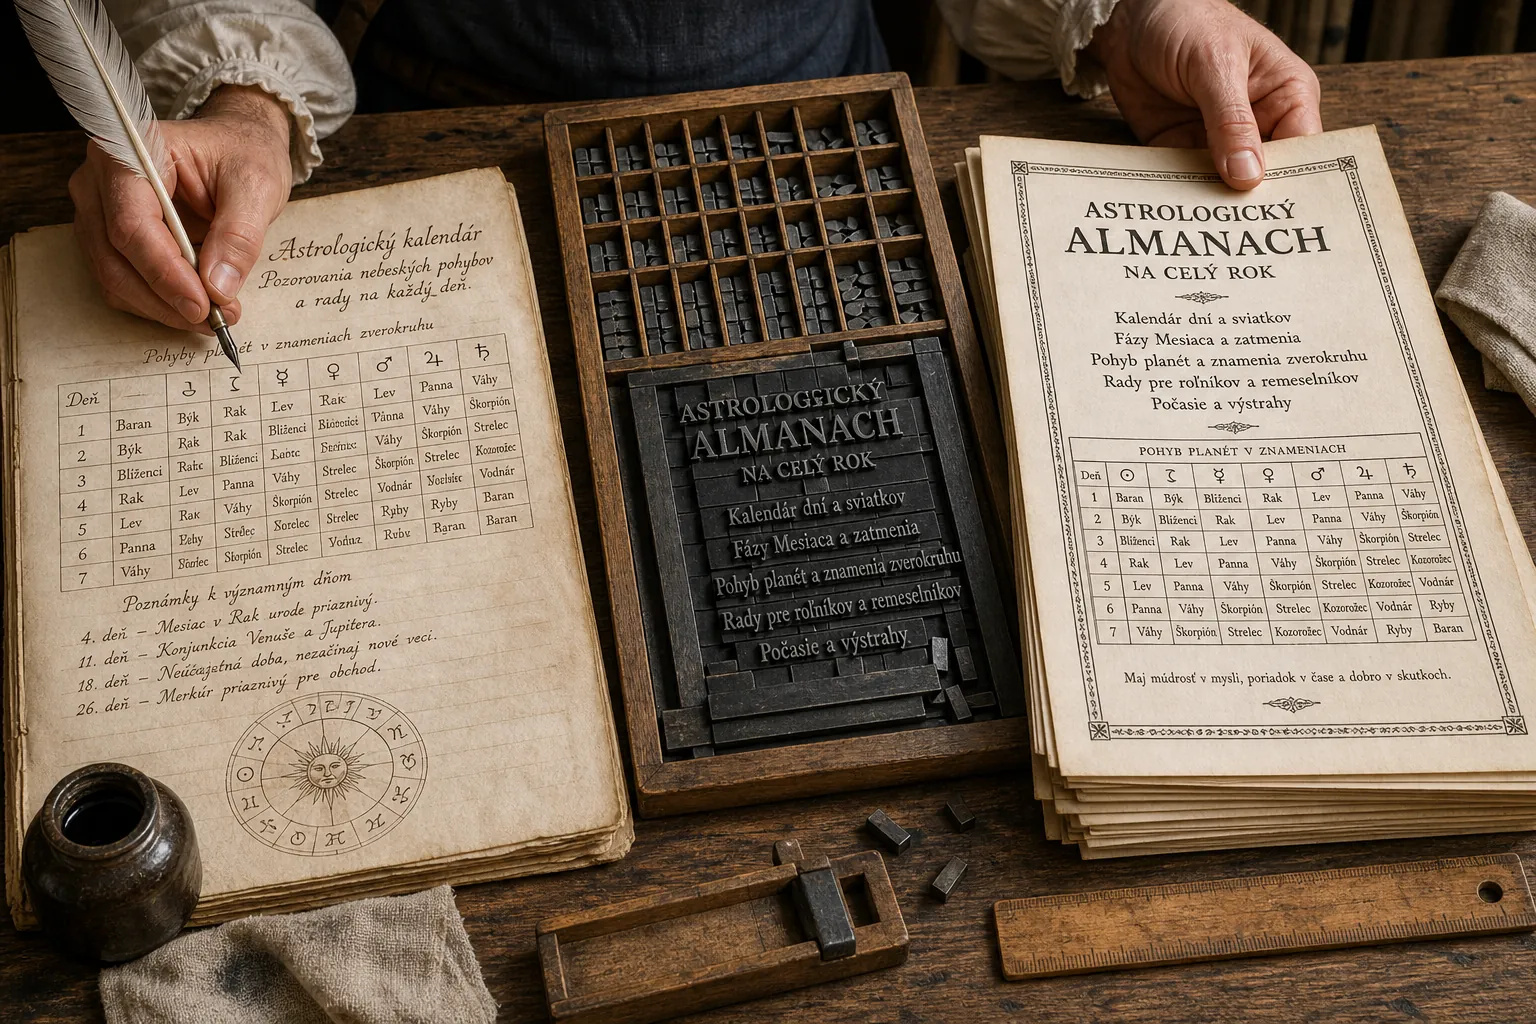 Astrologický kalendár
Pozorovania nebeských pohybov
a rady na každý deň.
Pohyby planét v znameniach zverokruhu
Deň ☿ ♀ ♂ ♃ ♄
1 Baran Býk Rak Lev Rak Lev Panna Váhy
2 Býk Rak Rak Blíženci Váhy Škorpión
3 Blíženci Blíženci Váhy Škorpión Strelec
4 Rak Lev Panna Váhy Strelec Škorpión Strelec Kozorožec
5 Lev Rak Váhy Škorpión Strelec Vodnár Vodnár
6 Panna Strelec Ryby Ryby Baran
7 Váhy Škorpión Strelec Baran Baran
Poznámky k významným dňom
4. deň – Mesiac v Rak urode priaznivý.
11. deň – Konjunkcia Venuše a Jupitera.
18. deň – doba, nezačínaj nové veci.
26. deň – Merkúr priaznivý pre obchod.
ASTROLOGICKÝ
ALMANACH
NA CELÝ ROK
Kalendár dní a sviatkov
Fázy Mesiaca a zatmenia
Pohyb planét a znamenia zverokruhu
Rady pre roľníkov a remeselníkov
Počasie a výstrahy
ASTROLOGICKÝ
ALMANACH
NA CELÝ ROK
Kalendár dní a sviatkov
Fázy Mesiaca a zatmenia
Pohyb planét a znamenia zverokruhu
Rady pre roľníkov a remeselníkov
Počasie a výstrahy
POHYB PLANÉT V ZNAMENIACH
Deň ☉ ☾ ☿ ♀ ♂ ♃ ♄
1 Baran Býk Blíženci Rak Lev Panna Váhy
2 Býk Blíženci Rak Lev Panna Váhy Škorpión
3 Blíženci Rak Lev Panna Váhy Škorpión Strelec
4 Rak Lev Panna Váhy Škorpión Strelec Kozorožec
5 Lev Panna Váhy Škorpión Strelec Kozorožec Vodnár
6 Panna Váhy Škorpión Strelec Kozorožec Vodnár Ryby
7 Váhy Škorpión Strelec Kozorožec Vodnár Ryby Baran
Maj múdrosť v mysli, poriadok v čase a dobro v skutkoch.